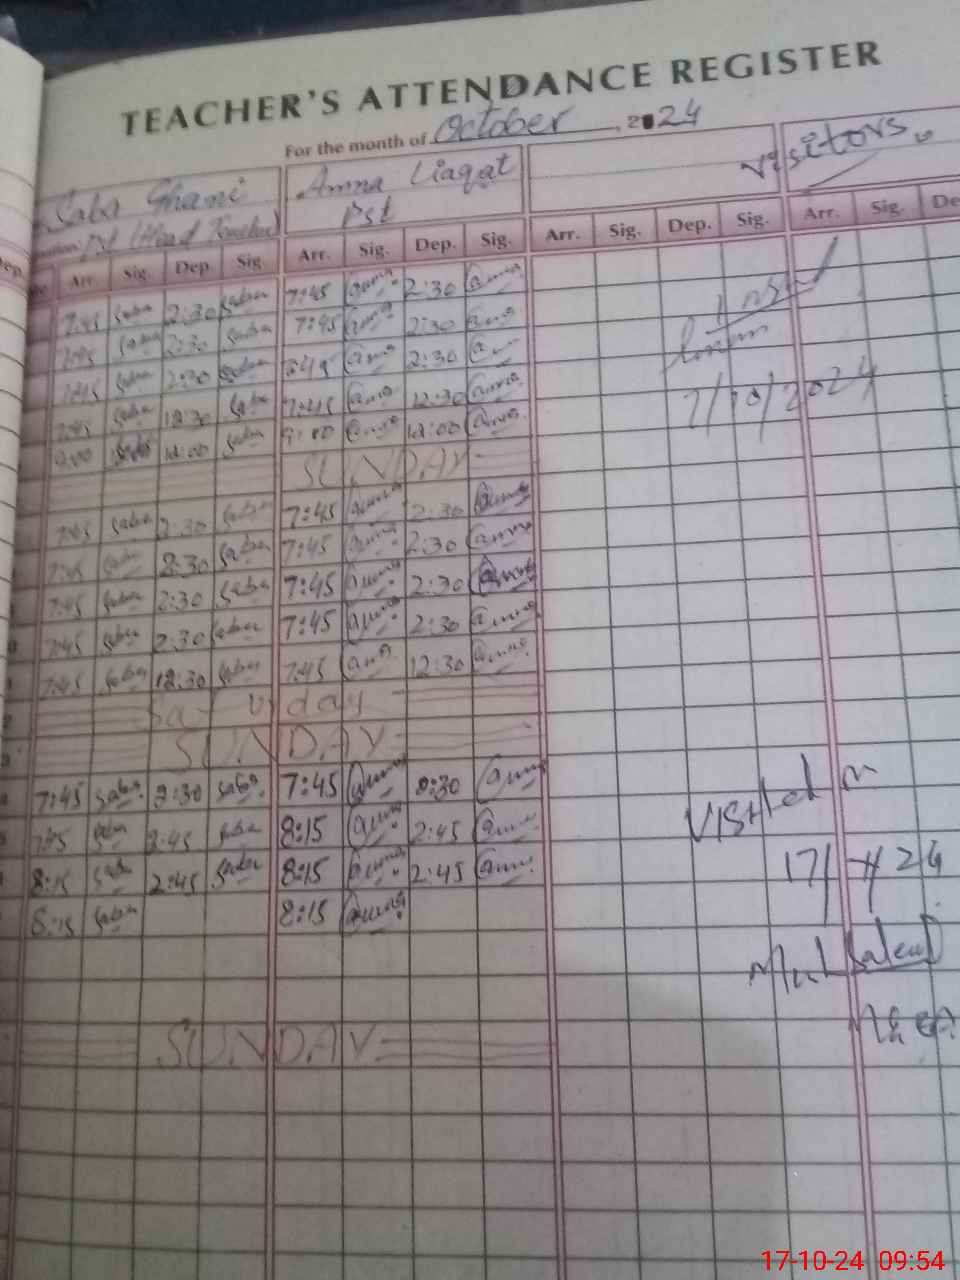 TEACHER'S ATTENDANCE REGISTER
For the month of October, 2024
Saba Ghani Amna Liaqat visitors.
Pst (Head Teacher) Pst
Dep. Arr. Sig. Dep. Sig. Arr. Sig. Dep. Sig. Arr. Sig. Dep. Sig. Arr. Sig. De
7:45 saba 2:30 saba 7:45 amna 2:30 amna
7:45 saba 2:30 saba 7:45 amna 2:30 amna
7:45 saba 2:30 saba 2:30
7:45 saba 12:30 saba 7:45 amna 12:30 amna 7/10/2024
9:00 saba 12:00 saba 9:00 amna 12:00 amna
SUNDAY
7:45 saba 2:30 saba 7:45 amna 2:30 amna
7:45 saba 2:30 saba 7:45 amna 2:30 amna
7:45 saba 2:30 saba 7:45 amna 2:30 amna
7:45 saba 2:30 saba 7:45 amna 2:30 amna
7:45 saba 12:30 saba 7:45 amna 12:30 amna
Saturday
SUNDAY
7:45 saba 2:30 saba 7:45 amna 2:30 amna
7:45 saba 2:45 saba 8:15 amna 2:45 amna
Visited on
8:15 saba 2:45 saba 8:15 amna 2:45 amna
8:15 saba 8:15 amna
SUNDAY
17-10-24 09:54